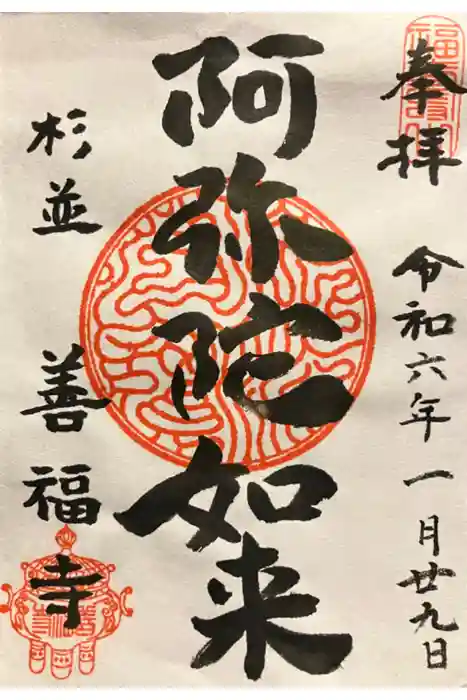 奉拝 令和六年一月廿九日
阿弥陀如来
杉並 善福寺